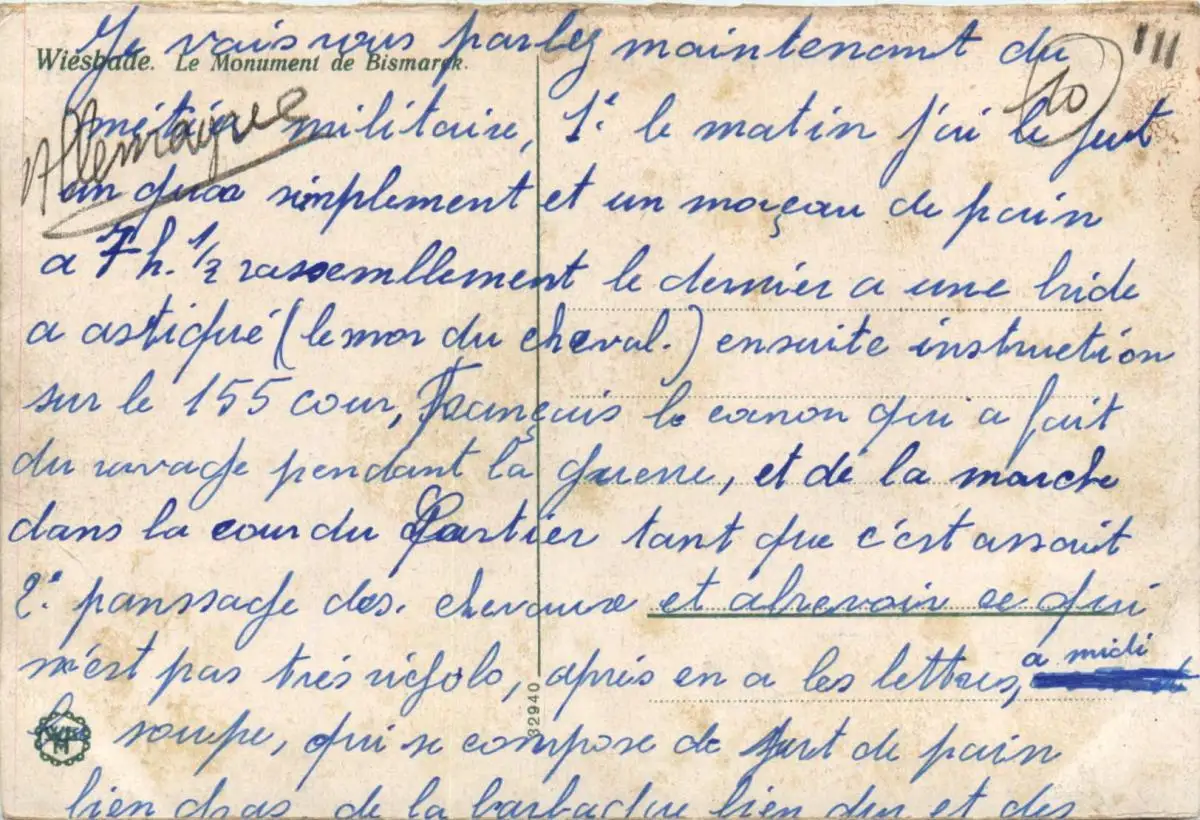 Je vais vous parlez maintenant du
111
Wiesbade. Le Monument de Bismarck.
10
Allemagne
métier militaire, 1e le matin j'ai le jut
un qua simplement et un moçeau de pain
a 7 h. 1/2 rassemllement le dernier a une bride
a astiqué (le mor du cheval.) ensuite instruction
sur le 155 cour, Français le canon qui a fait
du ravage pendant la guerre, et de la marche
dans la cour du Qartier tant que c'est assait
2e panssage des. chevaux et abrevoir ce qui
n'est pas trés rigolo, aprés en a les lettres, a midi
soupe, qui se compose de jut de pain
32940
bien gras de la barbaque bien dur et des